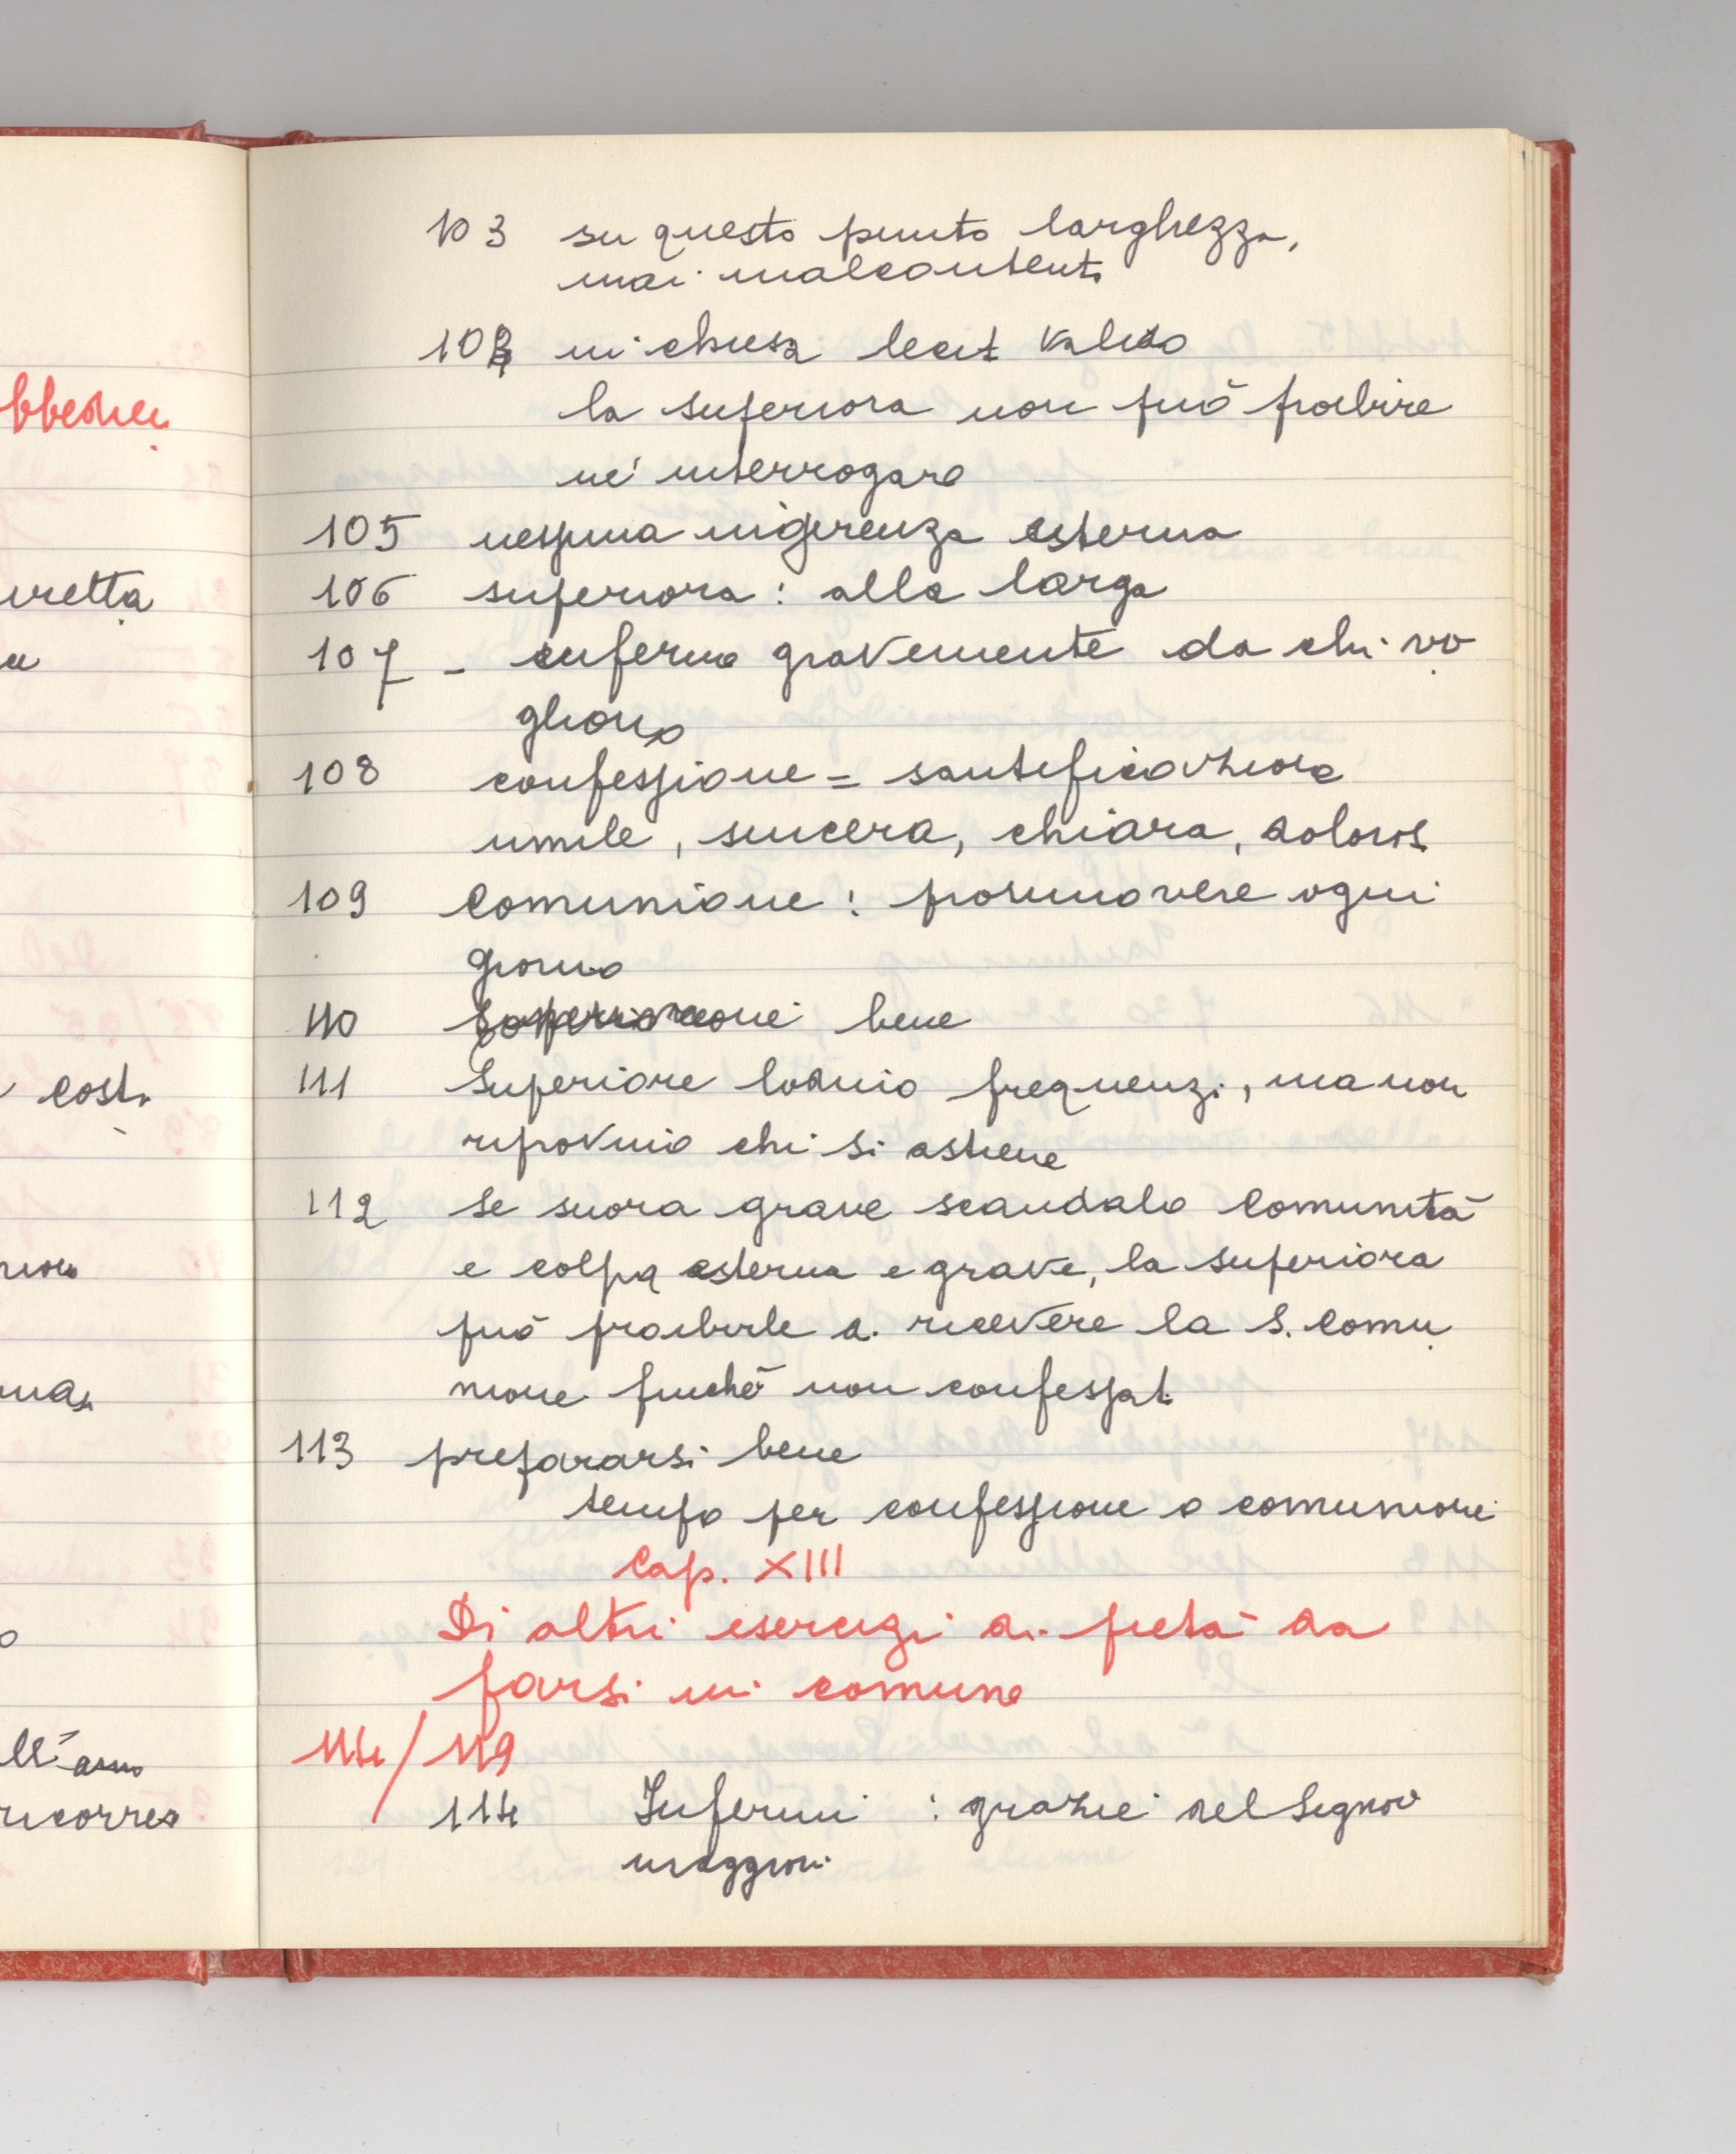 bbedien
uretta
cost.
ricorres
103 su questo punto larghezza,
mai malcontent
104 in chiesa lecit valido
la superiora non può proibire
né interrogare
105 nessuna ingerenza esterna
106 superiora: alla larga
107 - inferme gravemente da chi vo
gliono
108 confessione = santificazione
umile, sincera, chiara, doloros
109 Comunione: promuovere ogni
giorno
110 bene
111 Superiore lodino frequenz., ma non
riprovino chi si astiene
112 Se suora grave scandalo Comunità
e colpa esterna e grave, la superiora
può proibirle di ricevere la S. Comu
nione finché non confessat
113 prepararsi bene
tempo per confessione e comunioni
Cap. XIII
Di altri esercizi di pietà da
farsi in comune
114/119
114 Infermi : grazie del Signor
maggiori